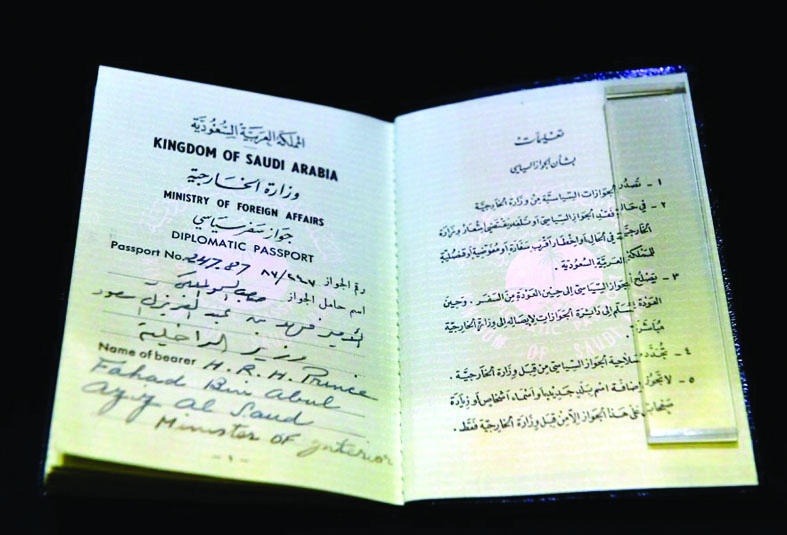 المملكة العربية السعودية
KINGDOM OF SAUDI ARABIA
وزارة الخارجية
MINISTRY OF FOREIGN AFFAIRS
جواز سفر سياسي
DIPLOMATIC PASSPORT
Passport No. 247.87 ٨٧/٢٤٧ رقم الجواز
اسم حامل الجواز صاحب السمو الملكي
الأمير فهد بن عبد العزيز آل سعود
وزير الداخلية
Name of bearer H. R. H. Prince
Fahad Bin Abul
Azyz Al Saud
Minister OF Interior
- ١ -
تعليمات
بشأن الجواز السياسي
١ - تصدر الجوازات السياسية من وزارة الخارجية
٢ - في حالة فقد الجواز السياسي أو تلفه يقتضي إشعار وزارة
الخارجية في الحال أو اخطار أقرب سفارة أو مفوضية أو قنصلية
للمملكة العربية السعودية .
٣ - يصلح الجواز السياسي إلى حين العودة من السفر . وحين
العودة يسلم إلى دائرة الجوازات لايصاله إلى وزارة الخارجية
مباشرة .
٤ - تجدد صلاحية الجواز السياسي من قبل وزارة الخارجية .
٥ - لا تجوز إضافة اسم بلد جديد أو أسماء أشخاص أو زيادة
صفحات على هذا الجواز إلا من قبل وزارة الخارجية فقط .